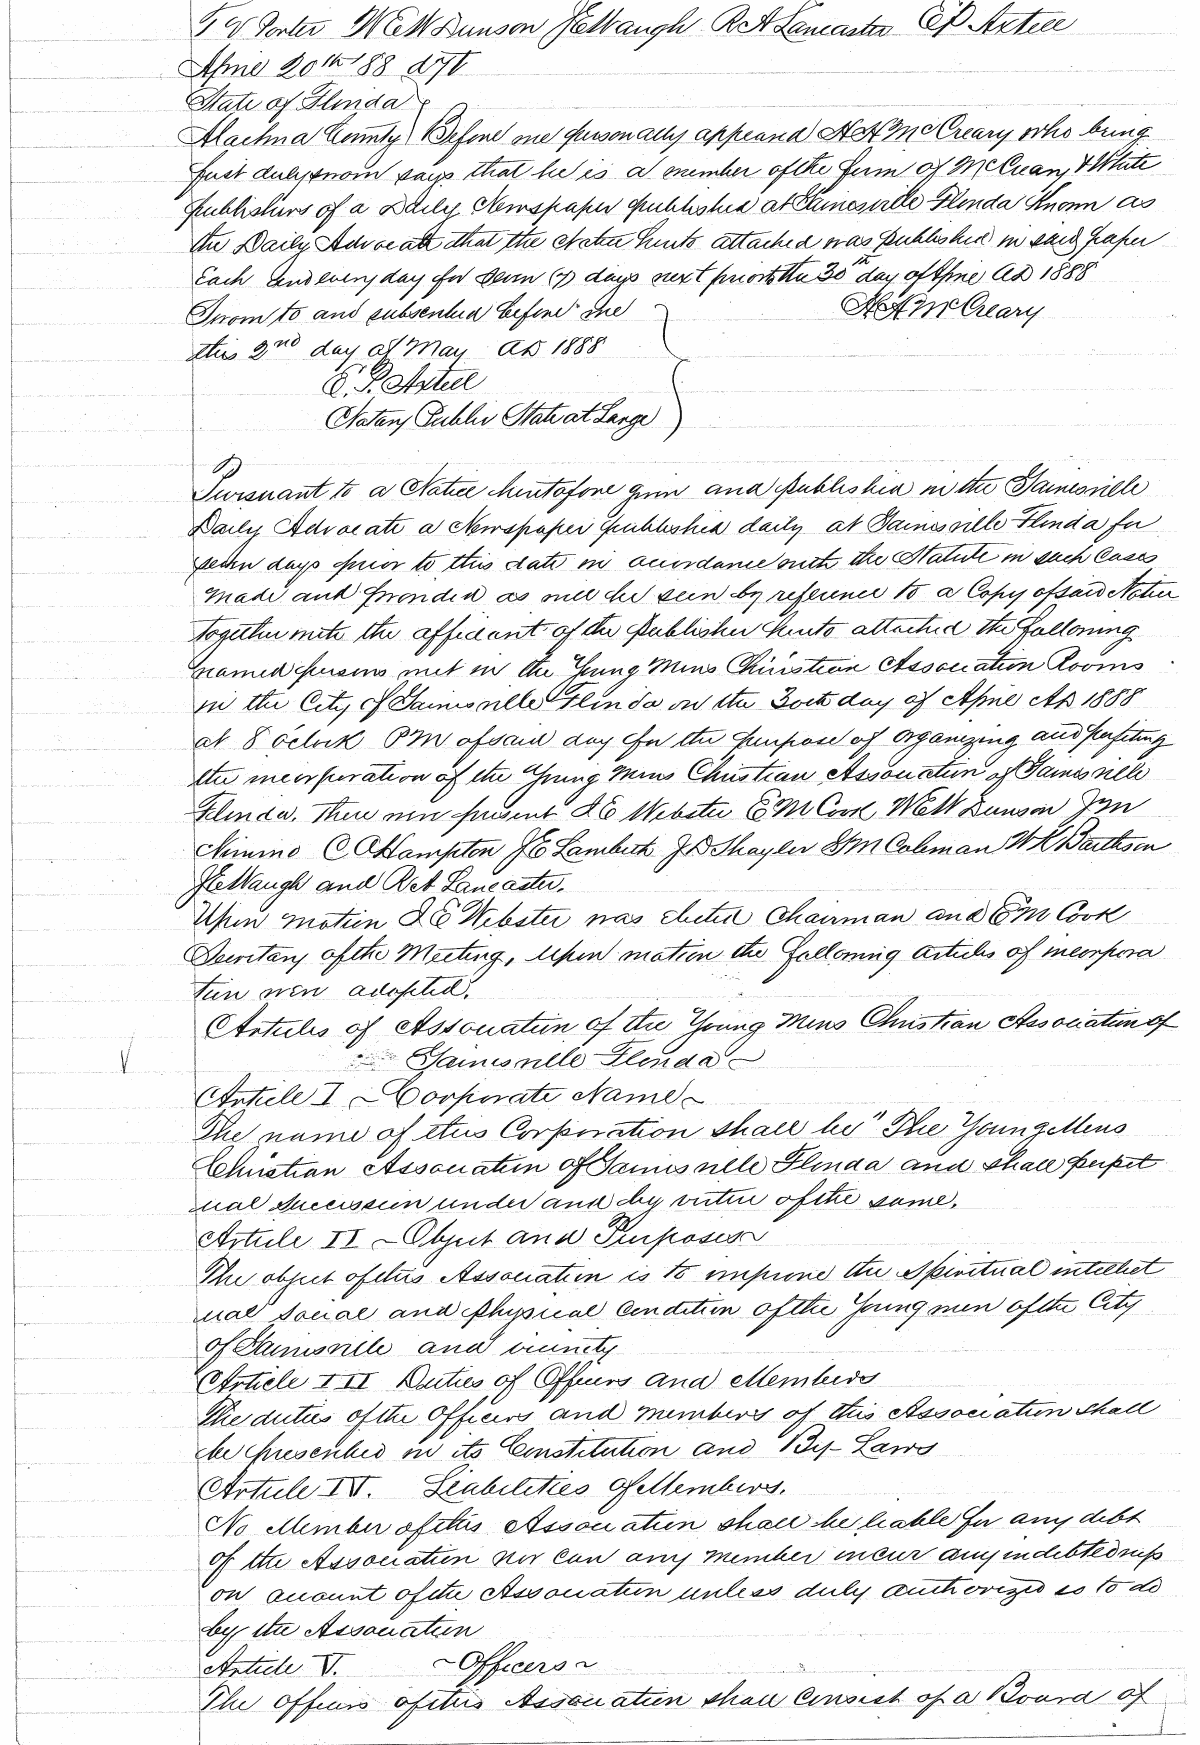 Porter W E W Dunson J E Waugh R A Lancaster E P Axtell
April 20th 88 d7t
State of Florida
Alachua County Before me personally appeared H H McCreary who being
first duly sworn says that he is a member of the firm of McCreary & White
publishers of a Daily Newspaper published at Gainesville Florida Known as
the Daily Advocate that the Notice hereto attached was published in said paper
Each and every day for seven (7) days next prior to the 30th day of April AD 1888
Sworn to and subscribed before me H H McCreary
this 2nd day of May AD 1888
E. P. Axtell
Notary Public State at Large
Pursuant to a Notice heretofore given and published in the Gainesville
Daily Advocate a Newspaper published daily at Gainesville Florida for
seven days prior to this date in accordance with the Statute in such Cases
made and provided as will be seen by reference to a Copy of said Notice
together with the affidavit of the Publisher hereto attached the following
named persons met in the Young Mens Christian Association Rooms
in the City of Gainesville Florida on the 30th day of April AD 1888
at 8 oclock PM of said day for the purpose of organizing and perfecting
the incorporation of the Young Mens Christian Association of Gainesville
Florida. There were present Webster E M Cook W E W Dunson Jno
Nimmo C C Hampton J E Lambeth J D Shayler S M Coleman W K
J E Waugh and Lancaster.
Upon motion Webster was elected Chairman and E M Cook
Secretary of the Meeting, Upon motion the following articles of incorpora
tion were adopted.
Articles of Association of the Young Mens Christian Association of
Gainesville Florida
Article I Corporate Name
The name of this Corporation shall be "The Young Mens
Christian Association of Gainesville Florida and shall perpet
ual succession under and by virtue of the same.
Article II Object and Purposes
The object of this Association is to improve the Spiritual intellect
ual social and physical condition of the Young men of the City
of Gainesville and vicinity
Article III Duties of Officers and Members
The duties of the Officers and members of this Association shall
be prescribed in its Constitution and By-Laws
Article IV. Liabilities of Members.
No Member of this Association shall be liable for any debt
of the Association nor can any member incur any indebtedness
on account of the Association unless duly authorized so to do
by the Association
Article V. Officers
The officers of this Association shall consist of a Board of